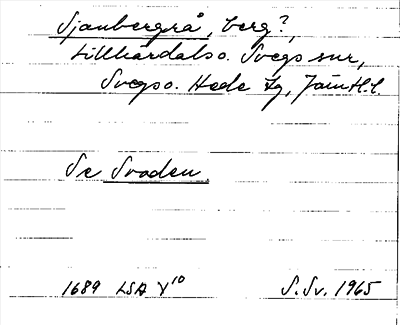 Sjaubergrå, berg?,
Lillhärdals o. Svegs snr,
Svegs o. Hede tg, Jämtl. l.
Se Svaden
1689 LSA X¹⁰ S. Sv. 1965